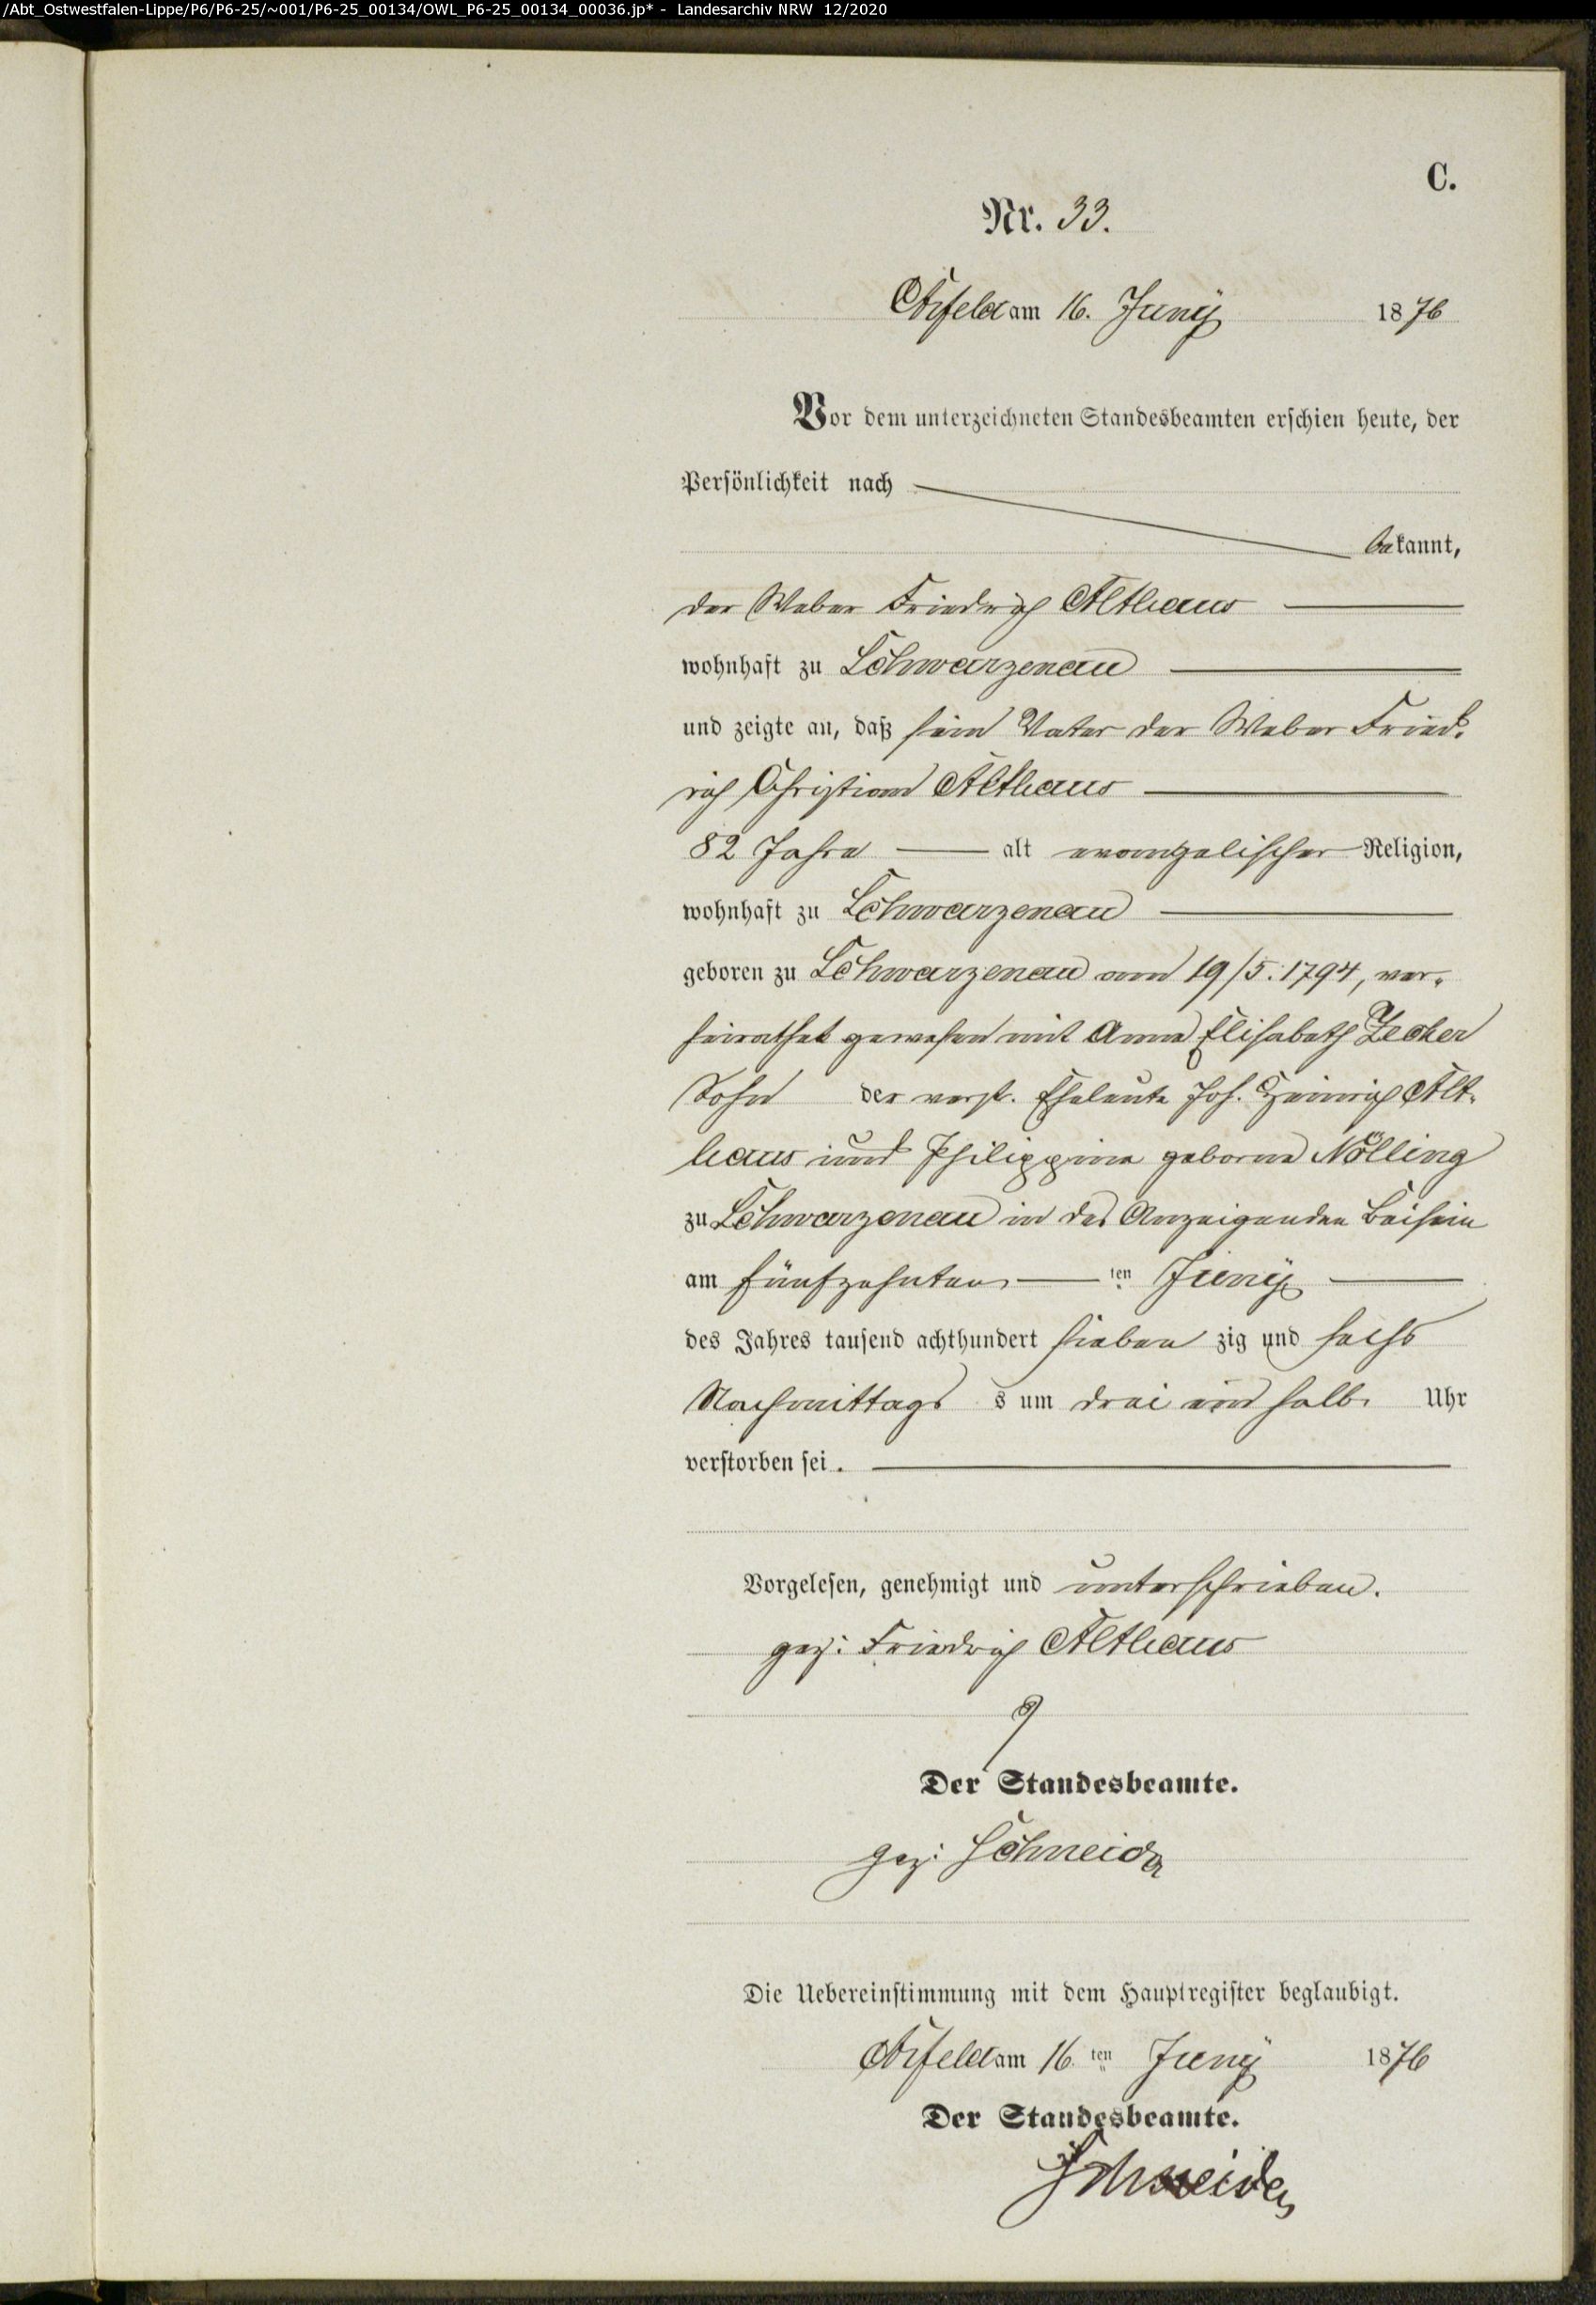 /Abt_Ostwestfalen-Lippe/P6/P6-25/~001/P6-25_00134/OWL_P6-25_00134_00036.jp* - Landesarchiv NRW 12/2020
C.
Nr. 33.
Arfeld am 16. Juny 1876
Vor dem unterzeichneten Standesbeamten erschien heute, der
Persönlichkeit nach
bekannt,
der Weber Friedrich Althaus
wohnhaft zu Schwarzenau
und zeigte an, daß sein Vater der Weber Fried-
rich Christian Althaus
82 Jahre alt evangelischer Religion,
wohnhaft zu Schwarzenau
geboren zu Schwarzenau am 19/5. 1794, ver-
heirathet gewesen mit Anna Elisabeth Zecher
Sohn der verst. Eheleute Joh. Heinrich Alt-
haus und Philippine geborne Nölling
zu Schwarzenau in des Anzeigenden Beisein
am fünfzehnten ten Juny
des Jahres tausend achthundert sieben zig und sechs
Nachmittags s um drei ein halb Uhr
verstorben sei.
Vorgelesen, genehmigt und unterschrieben.
gez: Friedrich Althaus
Der Standesbeamte.
gez: Schneider
Die Uebereinstimmung mit dem Hauptregister beglaubigt.
Arfeld am 16. ten Juny 1876
Der Standesbeamte.
Schneider